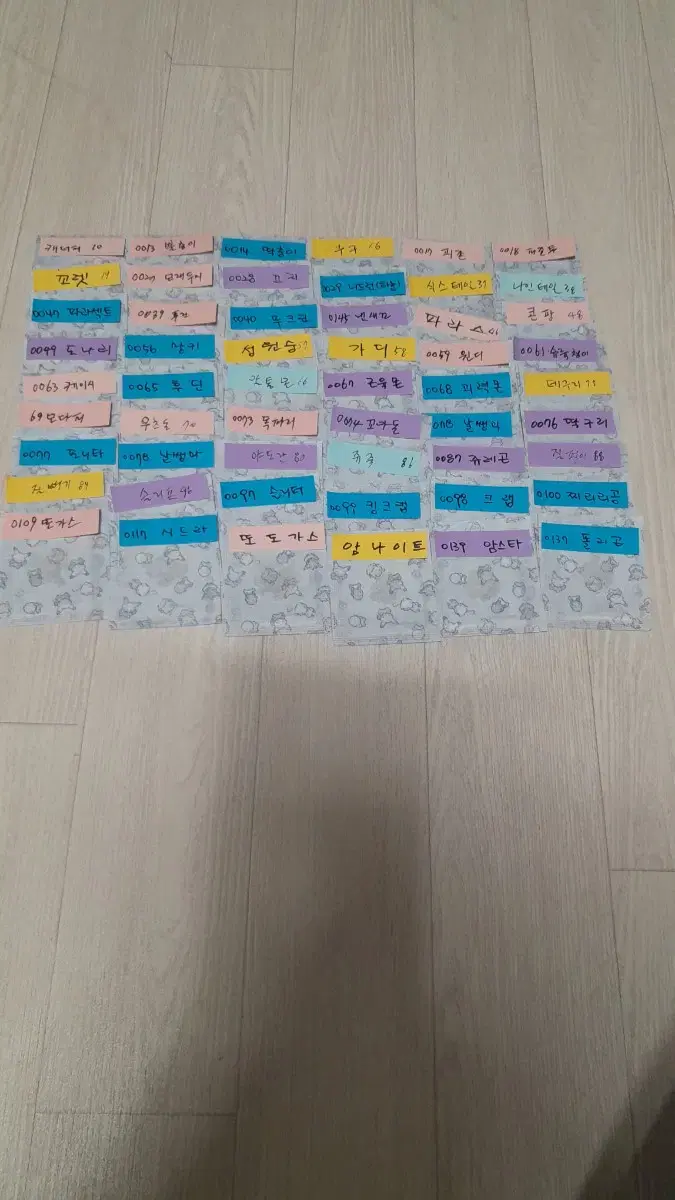 캐터피 10
0013 뿔충이
0014 딱충이
구구 16
0017 피죤
0018 피죤투
꼬렛 19
0027 모래두지
0028 고지
0029 니드런(파랑)
식스테일 37
나인테일 38
0047 파라섹트
0039 푸린
0040 푸크린
0145 냄새꼬
파라스 46
콘팡 48
0049 도나리
0056 망키
성원숭 57
가디 58
0059 윈디
0061 슈륙챙이
0063 캐이시
0065 후딘
알통몬 66
0067 근육몬
0068 괴력몬
69 모다피
우츠동 70
0073 독파리
0074 꼬마돌
078 날쌩마
0076 딱구리
0077 포니타
0078 날쌩마
야도란 80
쥬쥬 86
0087 쥬레곤
질퍽이 88
질뻐기 89
슬리프 96
0097 슬리퍼
0099 킹크랩
0098 크랩
0100 찌리리공
0109 또가스
0117 시드라
또도가스
암나이트
0139 암스타
0137 폴리곤